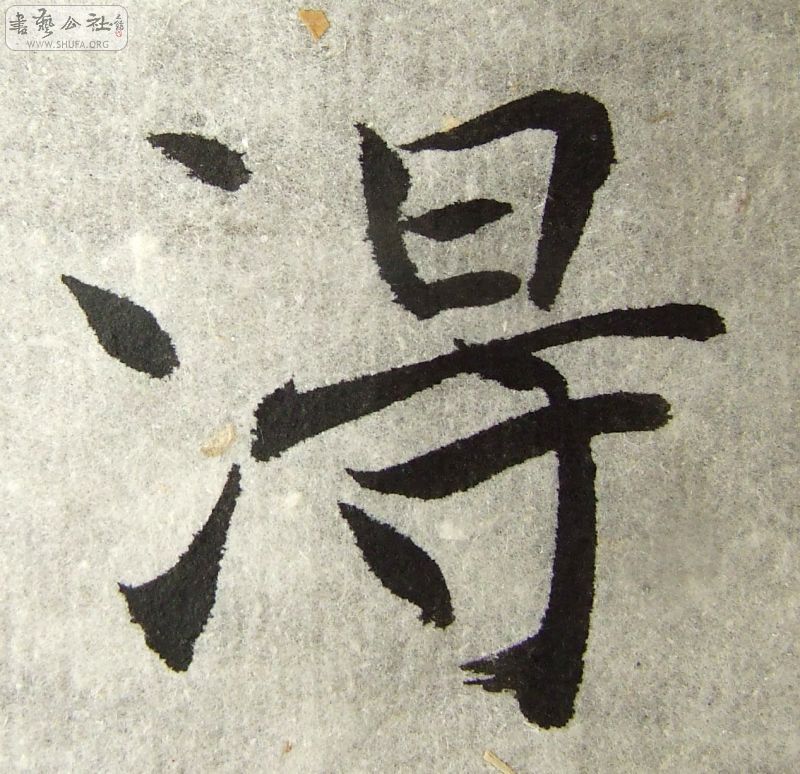 書藝公社
WWW.SHUFA.ORG
淂